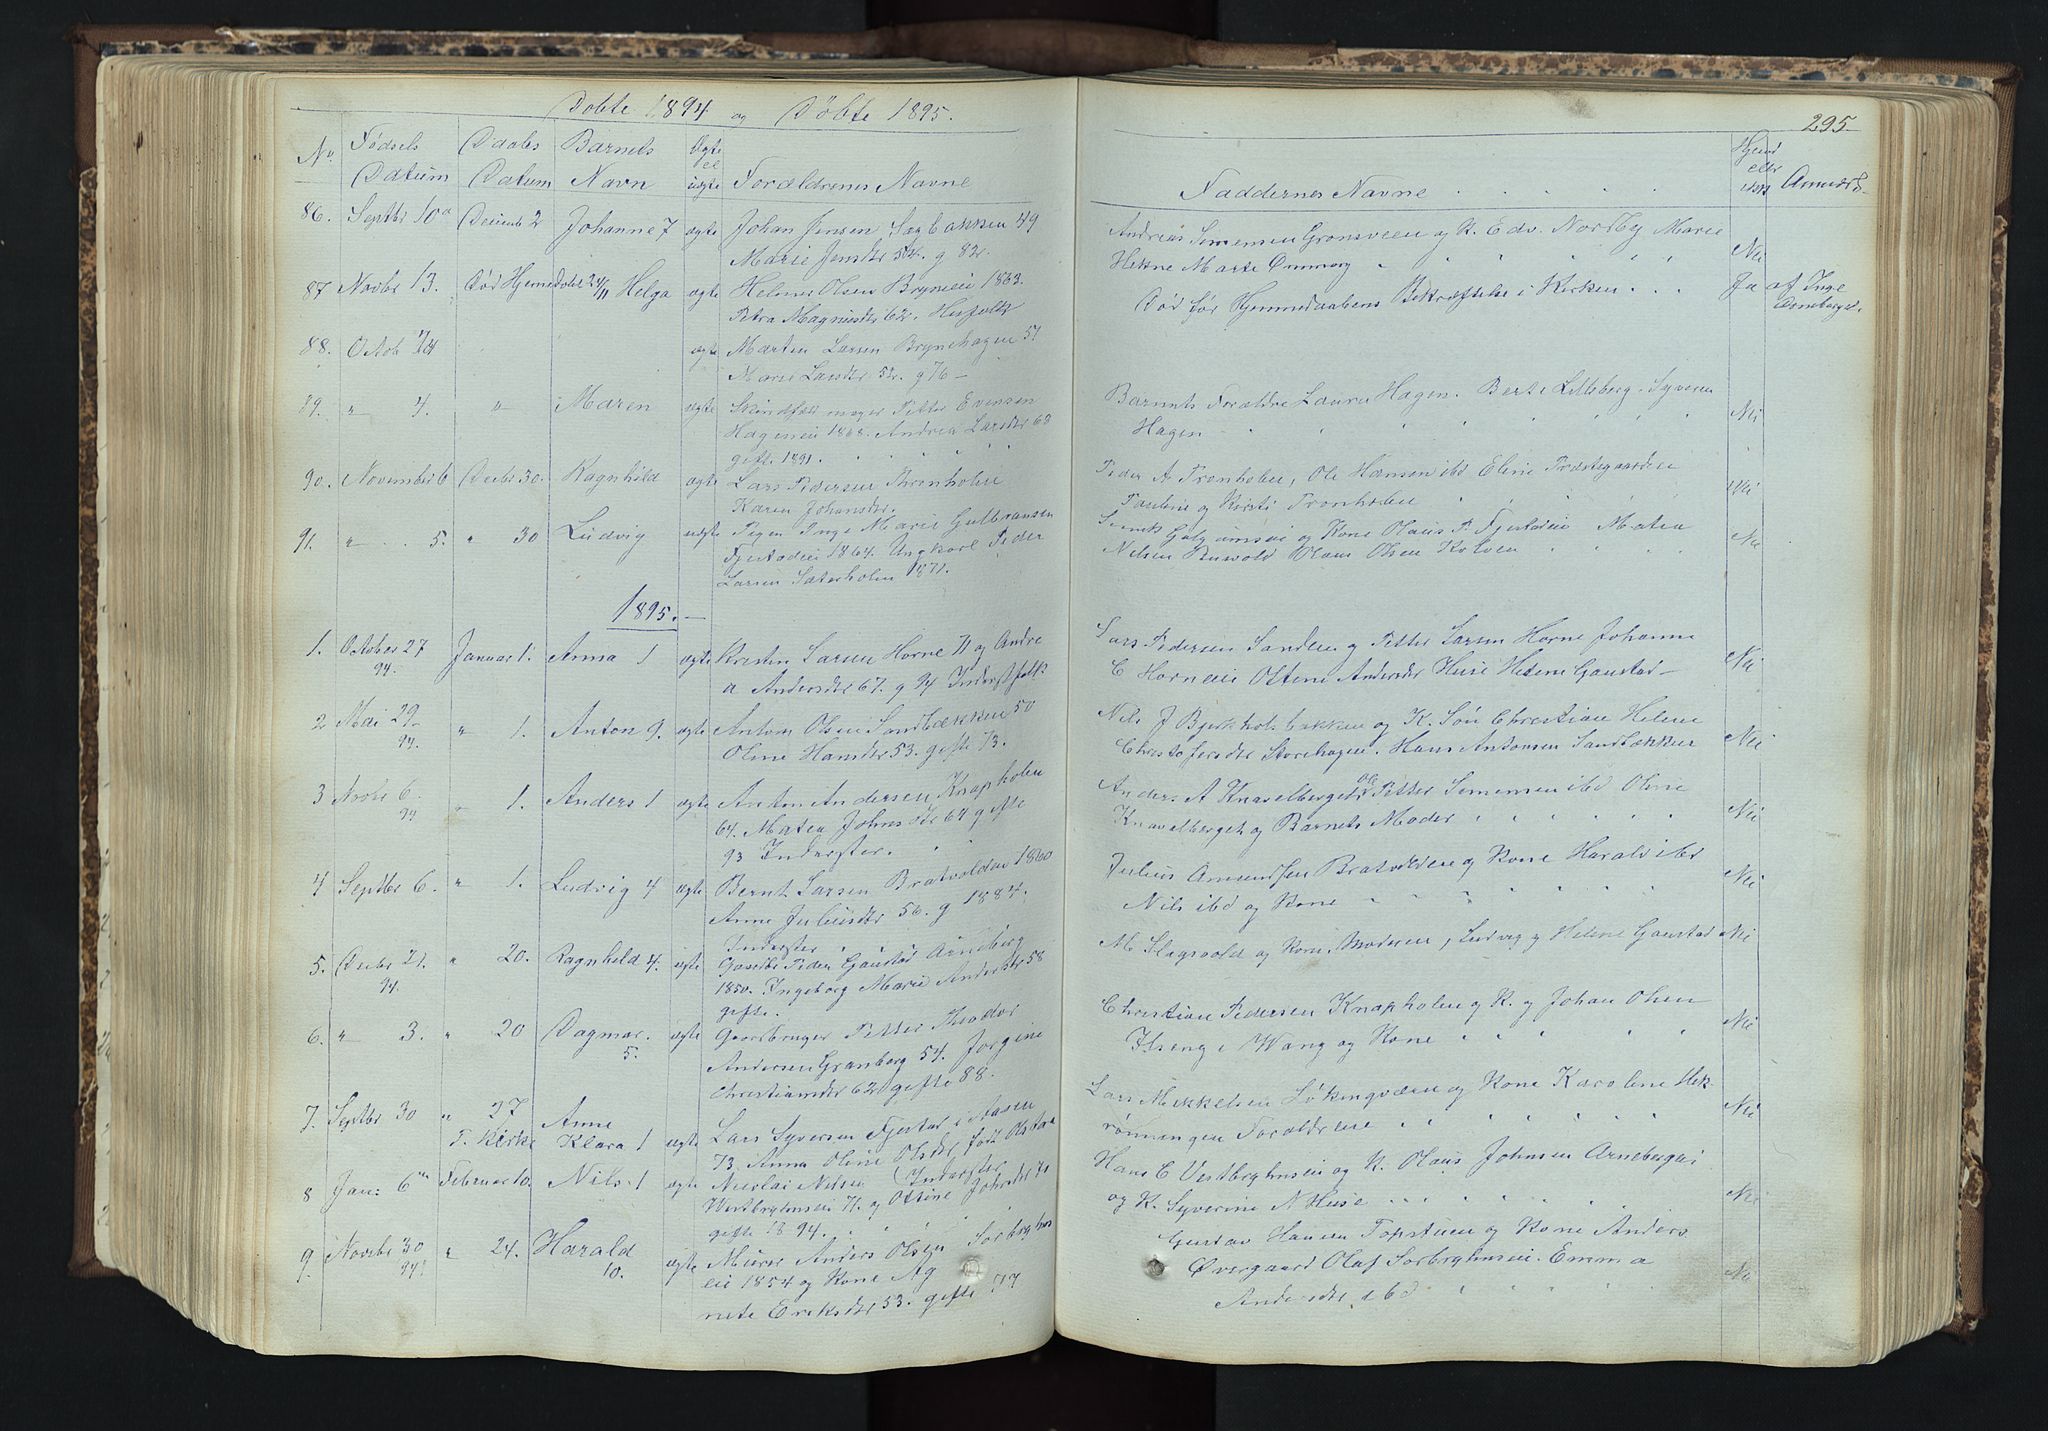 Døbte 1894 og Døbte 1895.
295
No. Fødsels Datum Daabs Datum Barnets Navn Ægte el uægte Forældrenes Navne
Faddernes Navne Hjemd eller
86. Septbr 10de Decemb 2 Johanne 7 ægte Johan Jensen Sagbakken 49
Marie Jensdtr 54. g 82.
Andreas Simensen Gronsveen og K. Edv. Nordby Marie
Hekne Marte Ommang Nei
87 Novbr 13. Død Hjemedøbt 24/11 Helga ægte Helmer Olsen Bryneie 1863.
Petra Magnusdtr 62. Husfolk
Død før Hjemmedaabens Bekræftelse i Kirken Ja af Inge
Arneberget.
88. Octob 24 ægte Marten Larsen Brynehagen 51
Marie Larsdtr 52. g 76 —
89. " 4. " Maren ægte Skindfeldmager Petter Evensen
Hageneie 1868. Andrea Larsdtr 68
gifte 1891.
Barnets Forældre Laura Hagen. Berte Lilleberg. Syverin
Hagen Nei
90. November 6 Decbr 30. Ragnhild ægte Lars Pedersen Thronholen
Karen Johansdtr.
Peder A. Tronholen, Ole Hansen ibd Eline Præstegaarden
Pauline og Kirsti Tronholen Nei
91. " 5. " 30 Ludvig uægte Pigen Inge Marie Gulbransen
Fjestadeie 1864. Ungkarl Peder
Larsen Sæterholen 1871.
og Kone Olaus P. Fjestadeie Matea
Nilsen Buvold Olaus Olsen Kolven Nei
1895. —
1. October 27 94. Januar 1. Anna 1 ægte Kristen Larsen Horne 71 og Andre
a Andersdtr 67. g 94 Inderstfolk
Lars Pedersen Sandlien og Petter Larsen Horne Johanne
C Horneie Ottine Andersdtr Huse Helene Gaustad — Nei
2 Mai 29 94. " 1. Anton 9. ægte Anton Olsen Sandbækken 50
Oline Hansdtr 53. gifte 73.
Nils J Bjerkholtbakken og K. Søn Christian Helene
Christofersdtr Storehagen. Hans Antonsen Sandbækken Nei
3 Novbr 6. 94 " 1. Anders 1 ægte Anton Andersen Knapholen
64. Matea Johnsdtr 64 gifte
93 Inderster.
Anders A Knavelberget Ole Petter Simensen ibd Oline
Knavelberget og Barnets Moder Nei
4 Septbr 6. " 1. Ludvig 4 ægte Bernt Larsen Bratvolden 1860
Anne Juliusdtr 56. g 1884.
Inderster
Julius Amundsen Bratvolden og Kone Harald ibd
Nils ibd og Kone Nei
5. Decbr 21. 94. " 20. Ragnhild 4. ægte Gaardbr Peder Gaustad Arneberg
1850. Ingeborg Marie Andersdtr 58
gifte.
M Slagsvold og Kone Moderen, Ludvig og Helene Gaustad Nei
6. " 3. " 20 Dagmar. 5. ægte Gaardbruger Petter Theodor
Andersen Granberg 54. Jorgine
Christiansdtr 62 gifte 88.
Christian Pedersen Knapholen og K. og Johan Olsen
Ilseng i Wang og Kone Nei
7. Septbr 30 " 27 T. Kirke Anne Klara 1 ægte Lars Syversen Fjestad i Aasen
73. Anna Oline Olsdtr født Olstad
(Inderster
Lars Mikkelsen Løkingværn og Kone Karoline Hek
rønningen Forældrene Nei
8 Jan: 6te Februar 10. Nils 1 ægte Nicolai Nilsen
Westberghuseie 71. og Ottine Johnsdtr 71
gifte 1894.
Hans E Vestberghuseie og K. Olaus Johnsen Arnebergeie
og K. Syverine N Huse Nei
9 Novbr 30 94. " 24. Harald 10. ægte Murer Anders Olsen Sorberghus
eie 1854 og Kone Ag
nete Eriksdtr 53. gifte 77
Gustav Hansen Topstuen og Kone Anders
Øvergaard Olaf Sorberghuseie. Emma
Andersdtr ibd Nei